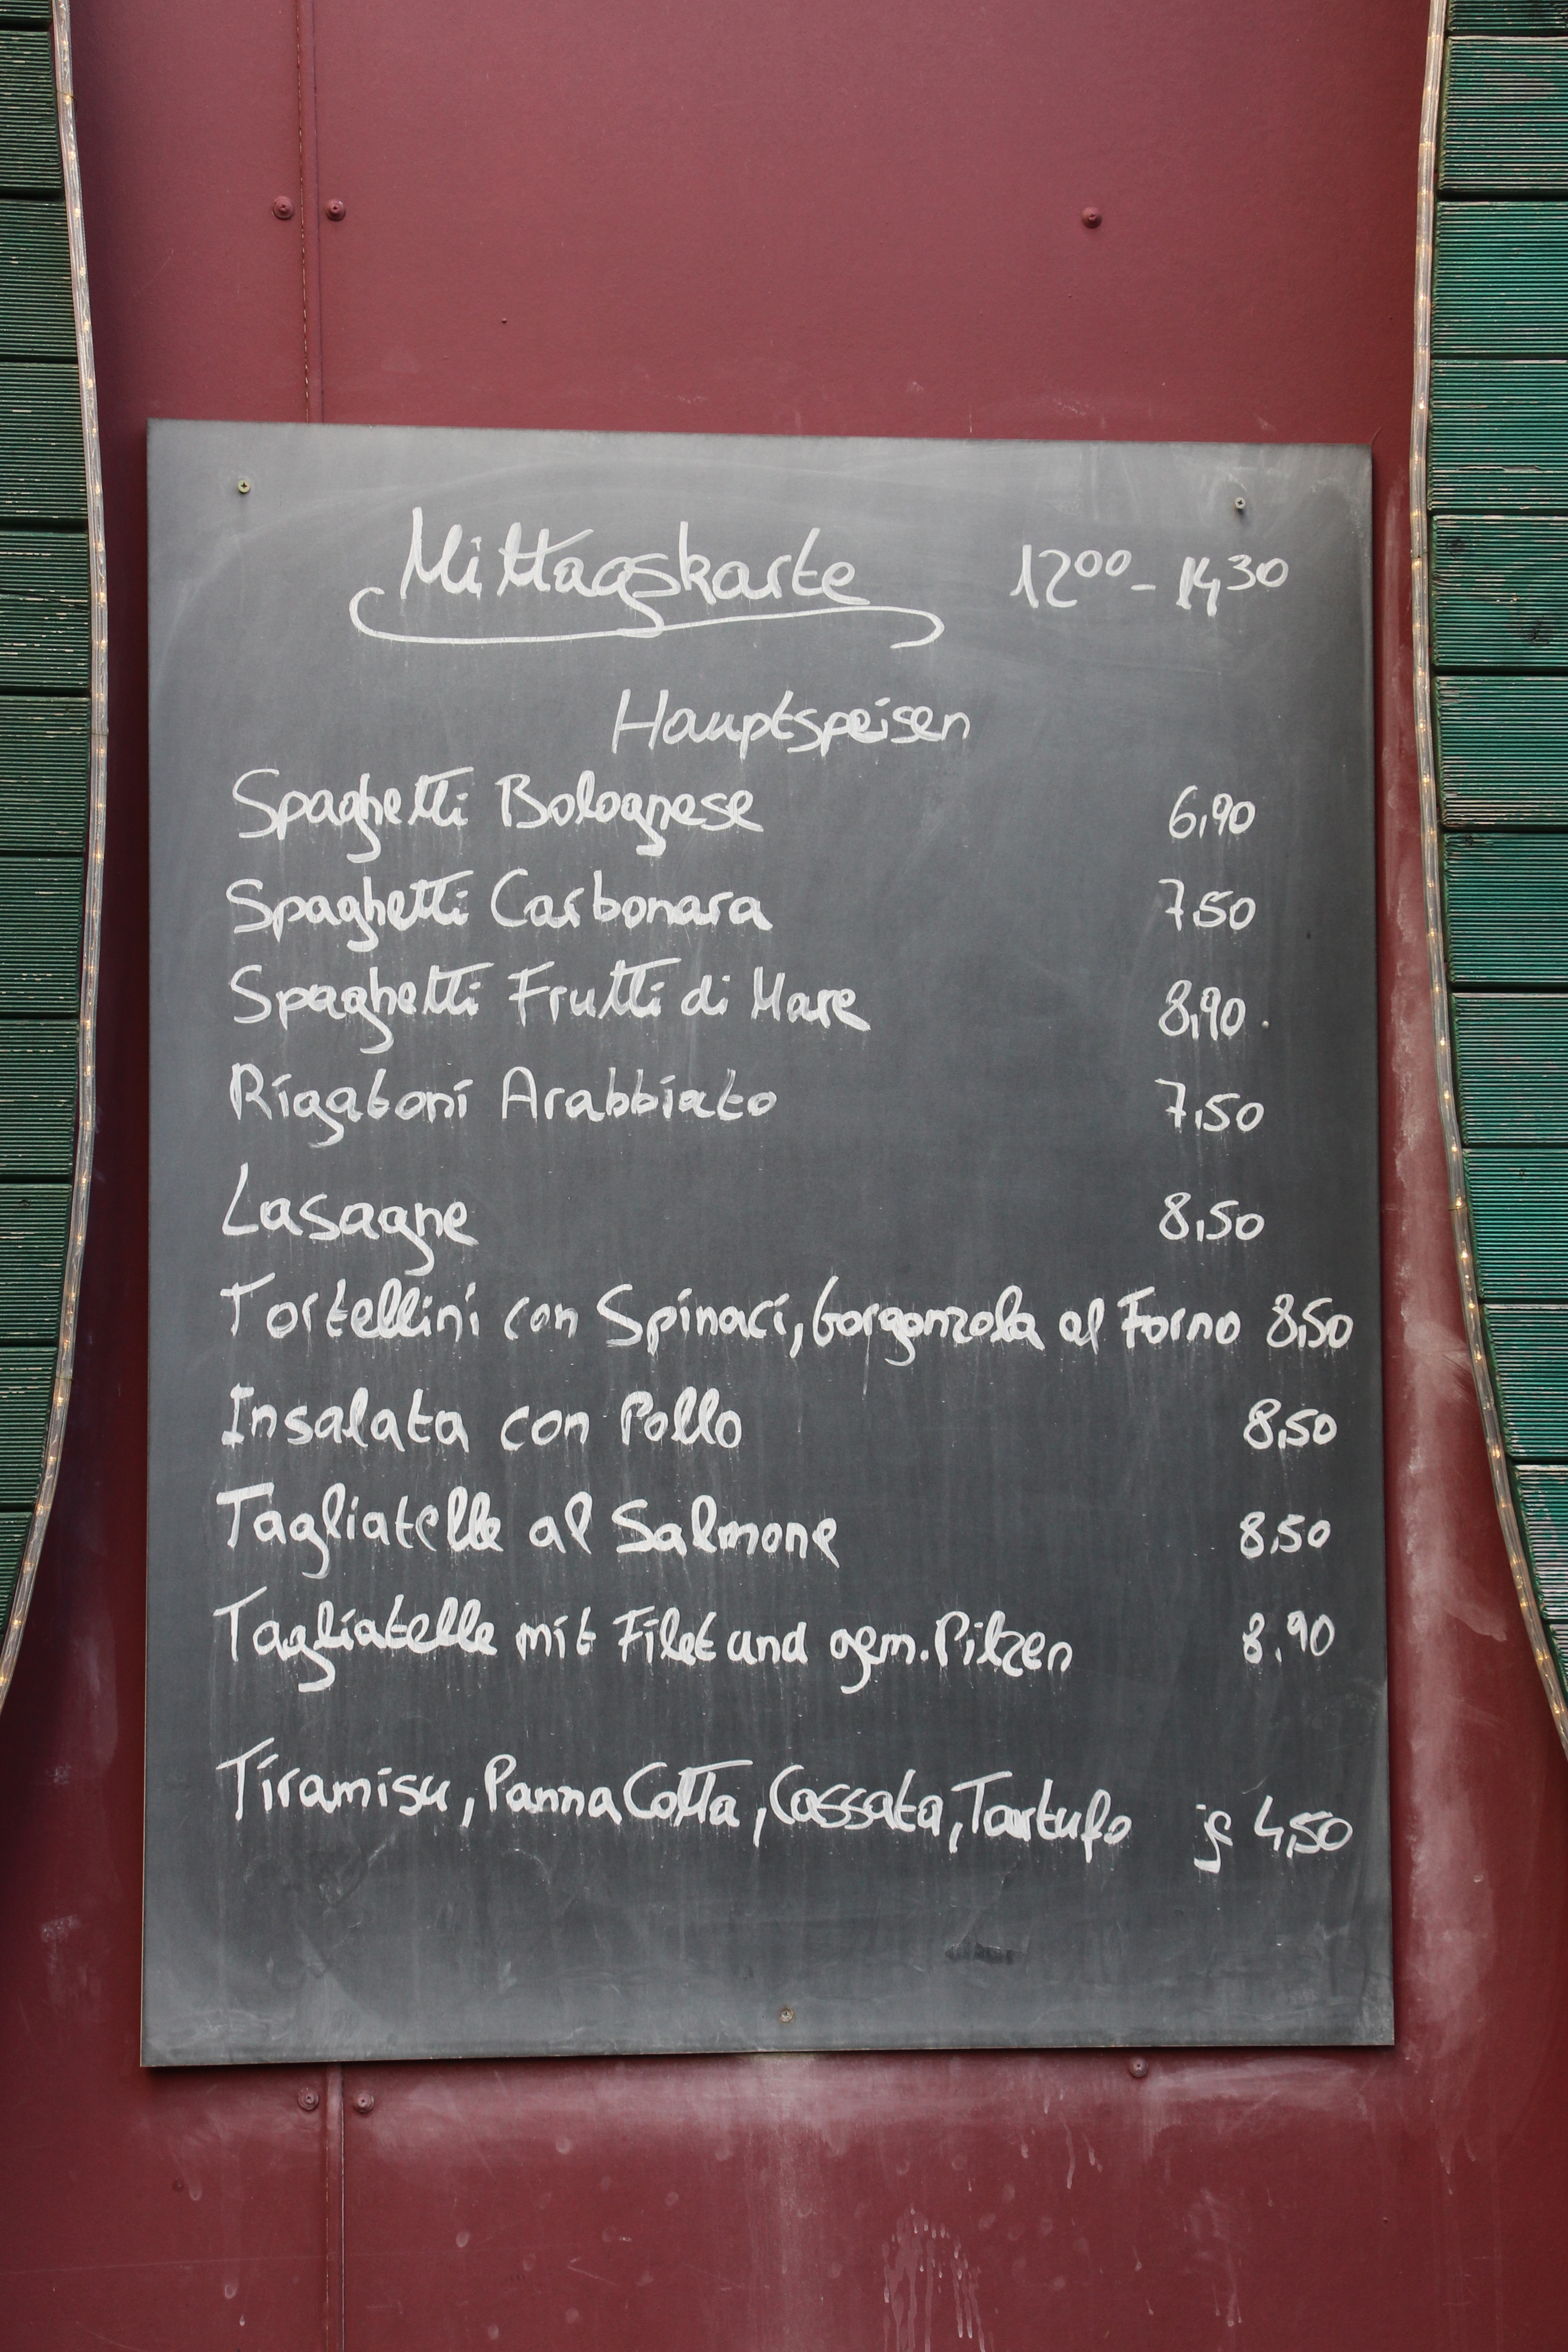 Mittagskarte 12⁰⁰ - 14³⁰
Hauptspeisen
Spaghetti Bolognese 6,90
Spaghetti Carbonara 7,50
Spaghetti Frutti di Mare 8,90
Rigatoni Arabbiato 7,50
Lasagne 8,50
Tortellini con Spinaci, Gorgonzola al Forno 8,50
Insalata con Pollo 8,50
Tagliatelle al Salmone 8,50
Tagliatelle mit Filet und gem. Pilzen 8,90
Tiramisu, Panna Cotta, Cassata, Tartufo je 4,50